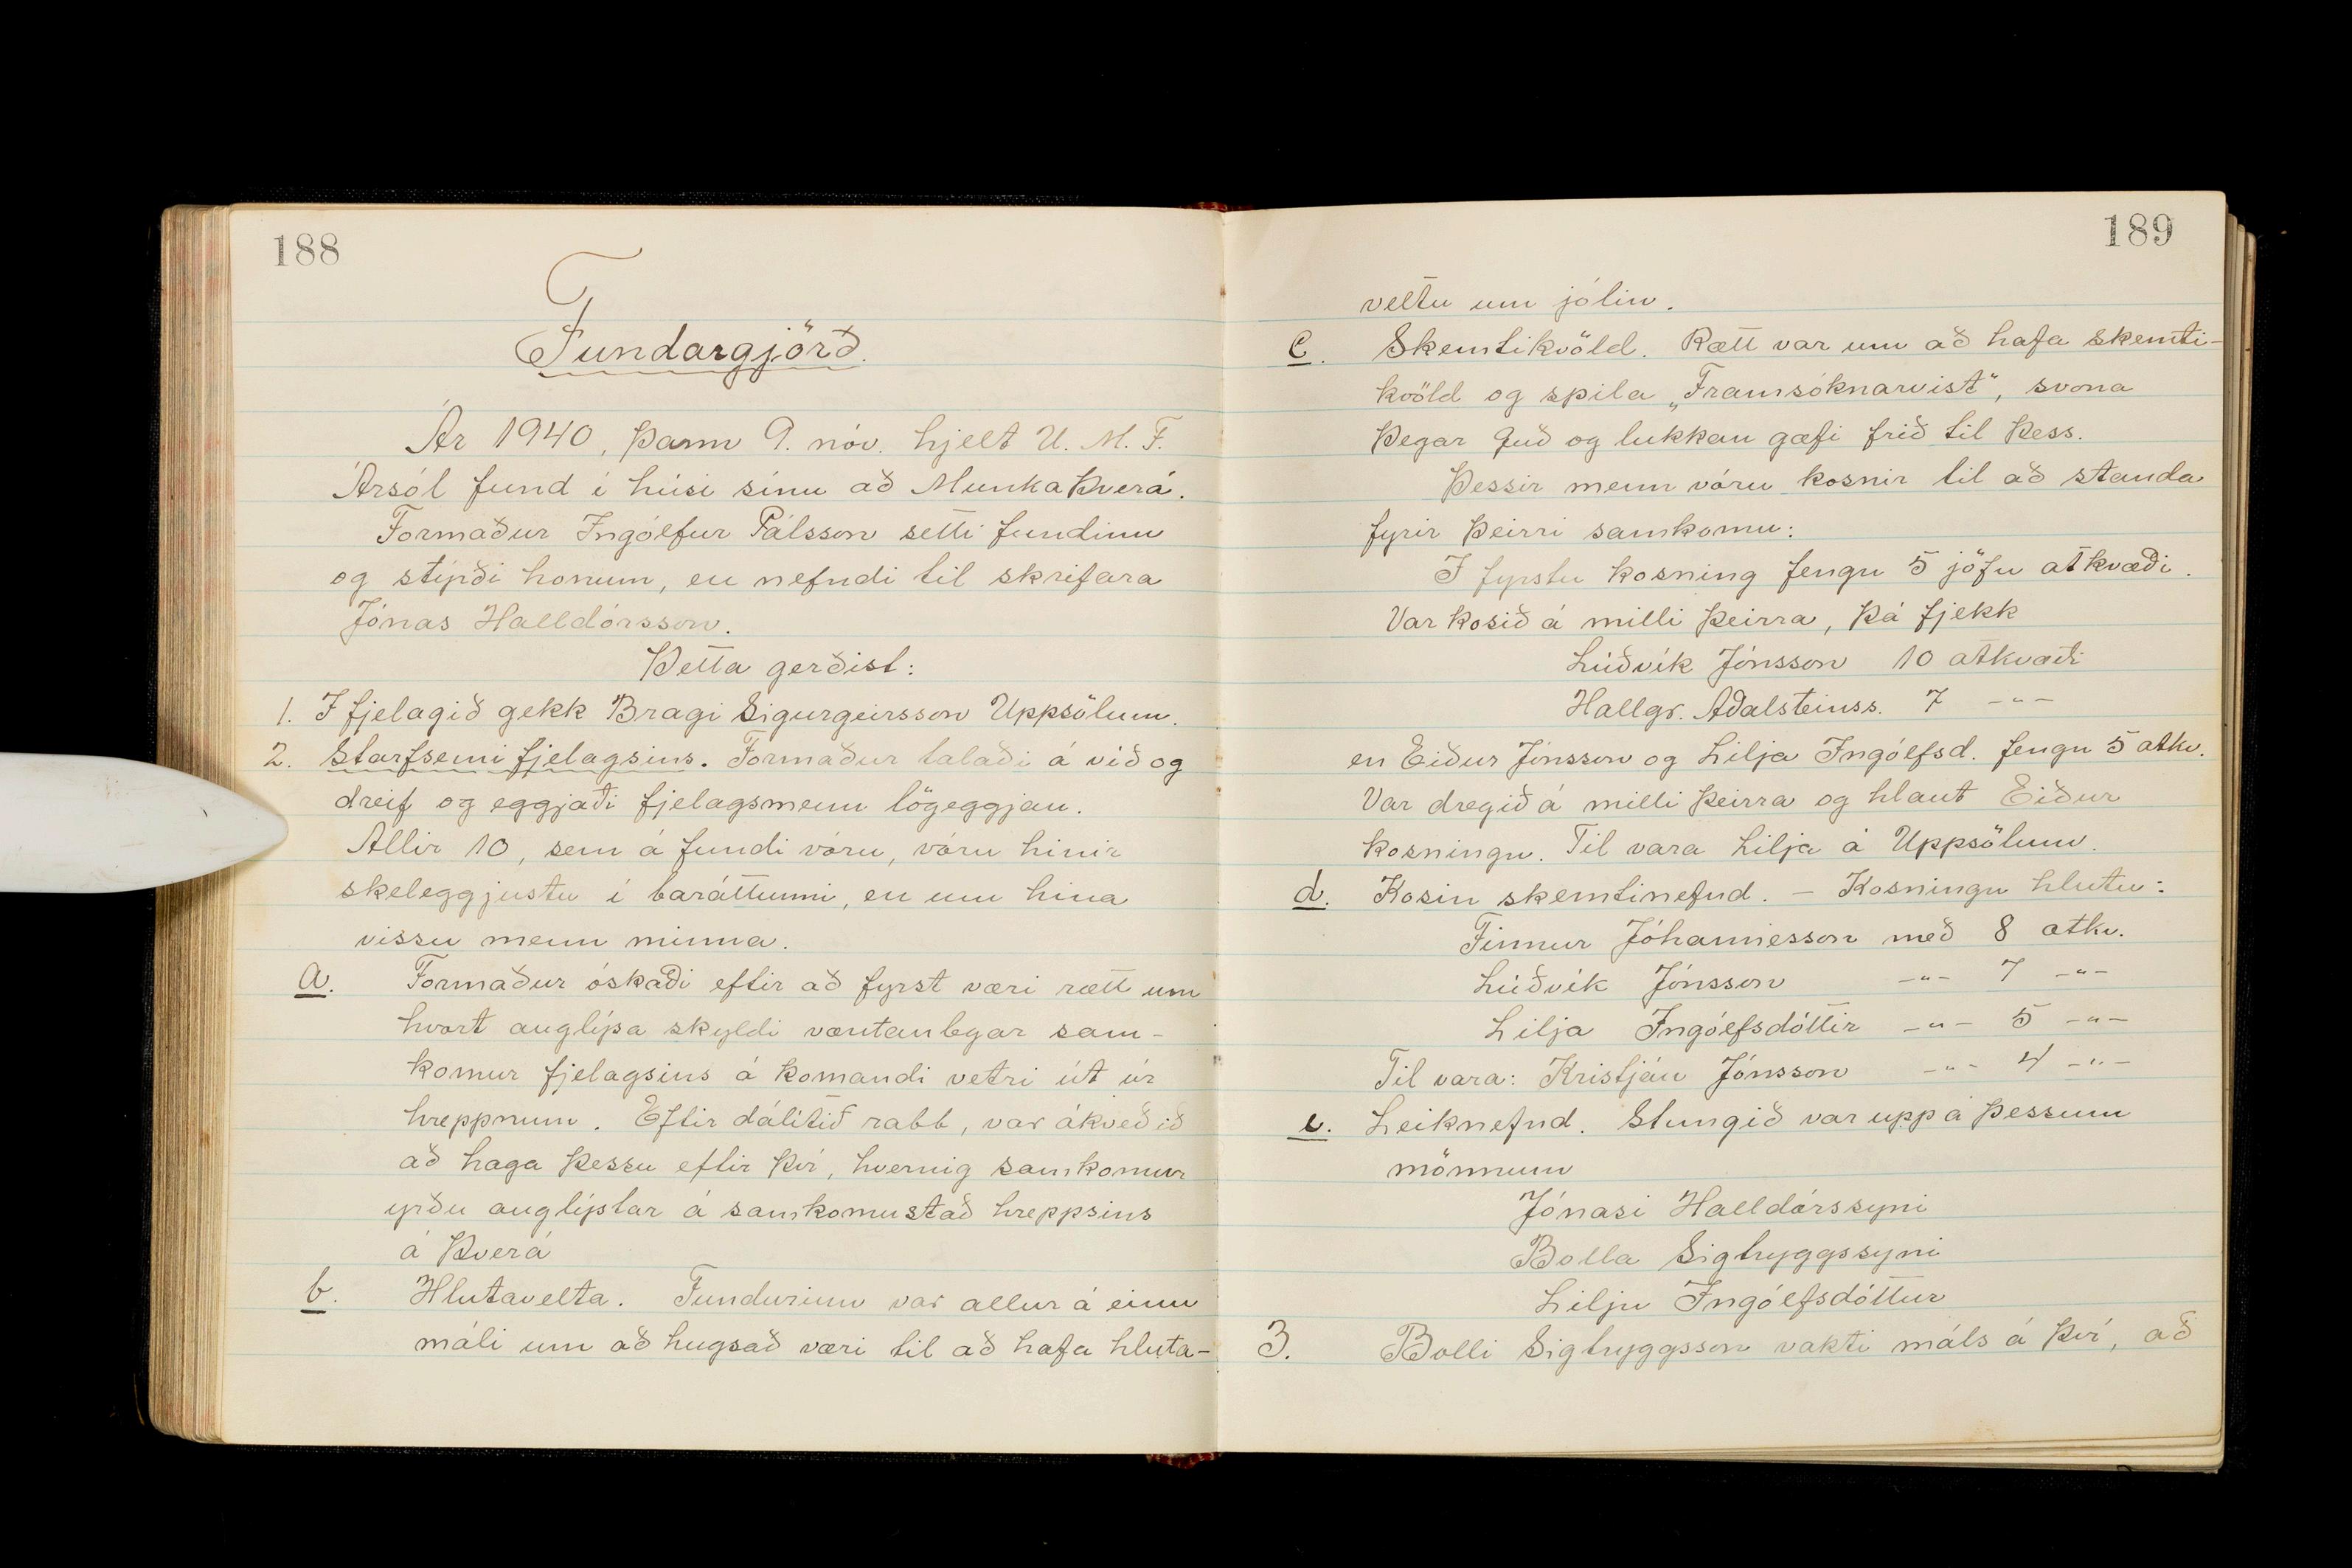 188
Fundargjörð.
Ár 1940, þann 9. nóv. hjelt U. M. F.
Ársól fund í húsi sínu að Munkaþverá.
Formaður Ingólfur Pálsson setti fundinn
og stýrði honum, en nefndi til skrifara
Jónas Halldórsson.
Þetta gerðist:
1. Í fjelagið gekk Bragi Sigurgeirsson Uppsölum.
2. Starfsemi fjelagsins. Formaður talaði á víð og
dreif og eggjaði fjelagsmenn lögeggjan.
Allir 10, sem á fundi vóru, vóru hinir
skeleggjustu í baráttunni, en um hina
vissu menn minna.
a. Formaður óskaði eftir að fyrst væri rætt um
hvort auglýsa skyldi væntanlegar sam-
komur fjelagsins á komandi vetri út úr
hreppnum. Eftir dálítið rabb, var ákveðið
að haga þessu eftir því, hvernig samkomur
yrðu auglýstar á samkomustað hreppsins
á Þverá
b. Hlutavelta. Fundurinn var allur á einu
máli um að hugsað væri til að hafa hluta-
189
veltu um jólin.
c. Skemtikvöld. Rætt var um að hafa skemti-
kvöld og spila „Framsóknarvist“, svona
þegar Guð og lukkan gæfi frið til þess.
Þessir menn vóru kosnir til að standa
fyrir þeirri samkomu:
Í fyrstu kosning fengu 5 jöfn atkvæði.
Var kosið á milli þeirra, þá fjekk
Lúðvík Jónsson 10 atkvæði
Hallgr. Aðalsteinss. 7 -"-
en Eiður Jónsson og Lilja Ingólfsd. fengu 5 atkv.
Var dregið á milli þeirra og hlaut Eiður
kosningu. Til vara Lilja á Uppsölum.
d. Kosin skemtinefnd. - Kosningu hlutu:
Finnur Jóhannesson með 8 atkv.
Lúðvík Jónsson -"- 7 -"-
Lilja Ingólfsdóttir -"- 5 -"-
Til vara: Kristján Jónsson -"- 4 -"-
e. Leiknefnd. Stungið var uppá þessum
mönnum
Jónasi Halldórssyni
Bolla Sigtryggssyni
Lilju Ingólfsdóttur
3. Bolli Sigtryggsson vakti máls á því, að